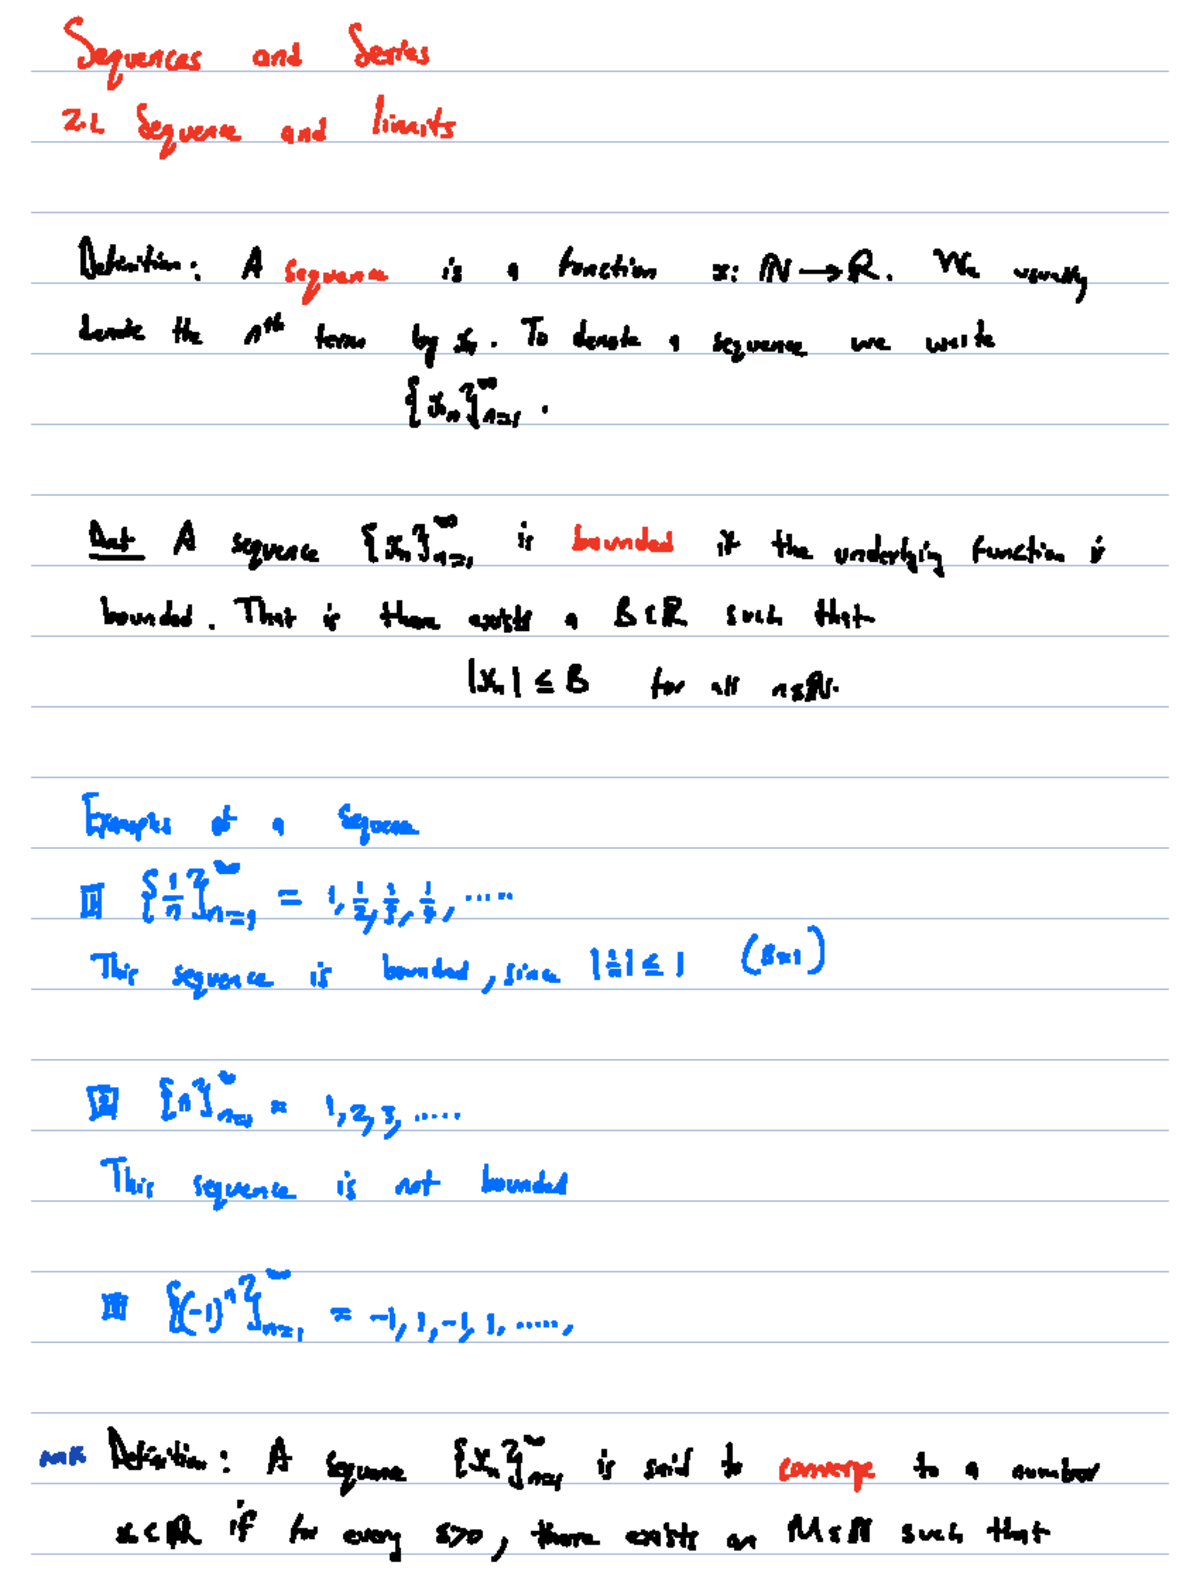 Sequences and Series
2.1 Sequence and limits
Definition: A sequence is a function x: ℕ → ℝ. We usually
denote the nᵗʰ term by xₙ. To denote a sequence we write
{xₙ}ₙ₌₁^∞.
Def A sequence {xₙ}ₙ₌₁^∞ is bounded if the underlying function is
bounded. That is there exists a B∈ℝ such that
|xₙ| ≤ B for all n∈ℕ.
Examples of a Sequence
1 {1/n}ₙ₌₁^∞ = 1, 1/2, 1/3, 1/4, .....
This sequence is bounded, since |1/n| ≤ 1 (B=1)
2 {n}ₙ₌₁^∞ = 1, 2, 3, .....
This sequence is not bounded
3 {(-1)ⁿ}ₙ₌₁^∞ = -1, 1, -1, 1, .....,
Definition: A sequence {xₙ}ₙ₌₁^∞ is said to converge to a number
x∈ℝ if for every ε>0, there exists an M∈ℕ such that